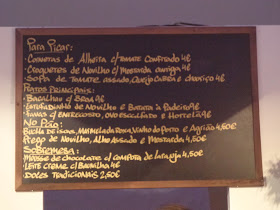 Para Picar:
• Cornetos de Alheira c/tomate confitado 4€
• Croquetes de Novilho c/ Mostarda caseira 4€
• Sopa de tomate assado, queijo cabra e chouriço 4€
Pratos Principais:
• Bacalhau c/ Broa 9€
• de Novilho e Batata à Padeiro 9€
• c/ entrecosto, ovo escalfado e Hortelã 9€
No Pão:
Bucha de isous, Marmelada Roxa, Vinho do Porto e Agrião 4,50€
Prego de Novilho, Alho Assado e Mostarda 4,50€
Sobremesa:
• Mousse de chocolate c/ compota de laranja 4,50€
• Leite creme c/ Baunilha 4€
• Doces tradicionais 2,50€